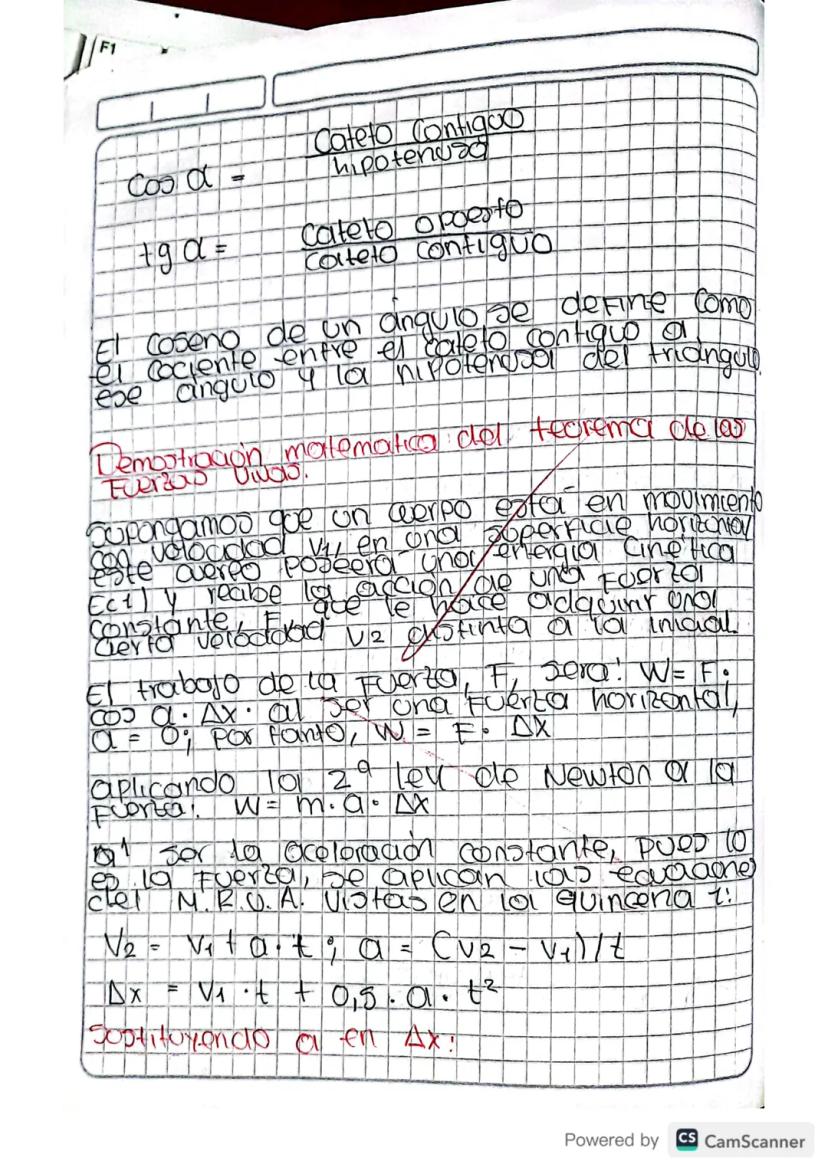 F1
Cos α = Cateto Contiguo
hipotenusa
tg α = Cateto opuesto
Cateto contiguo
El coseno de un ángulo se define como
el cociente entre el cateto contiguo a
ese angulo y la hipotenusa del triángulo
Demostración matematica del teorema de las
Fuerzas vivas.
Supongamos que un cuerpo está en movimiento
con velocidad v1, en una superficie horizontal
este cuerpo poseera una energia cinética
Ec1) y recibe la acción de una Fuerza
constante, F, que le hace adquirir una
cierta velocidad v2 distinta a la inicial.
El trabajo de la Fuerza, F, sera: W= F.
cos a. Δx. al ser una Fuerza horizontal,
a = 0; por tanto, W = F. Δx
aplicando la 2ª ley de Newton a la
Fuerza: W= m. a. Δx
al ser la aceloración constante, pues lo
es la Fuerza, se aplican las ecuaciones
del M.R.U.A. vistas en la quincena 1:
V2 = V1 + a.t; a = (v2 - v1)/t
Δx = V1 .t + 0,5. a. t²
Sustituyendo a en Δx:
Powered by CS CamScanner